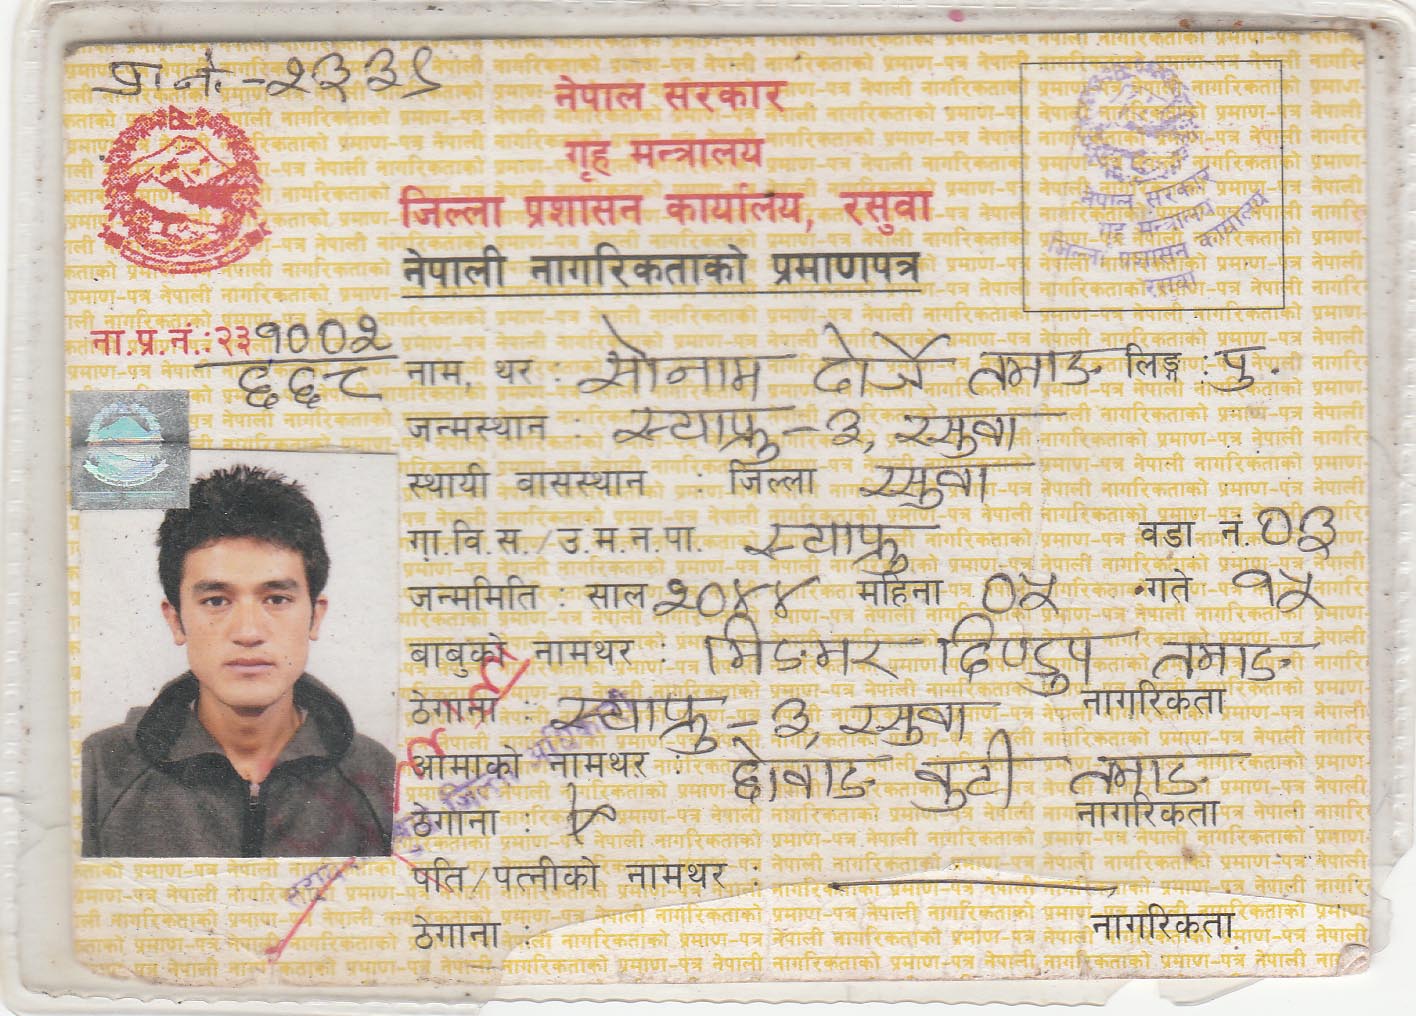 प्र.नं.-२३३९
नेपाल सरकार
गृह मन्त्रालय
जिल्ला प्रशासन कार्यालय, रसुवा
नेपाली नागरिकताको प्रमाणपत्र
नेपाल सरकार
गृह मन्त्रालय
जिल्ला प्रशासन कार्यालय
रसुवा
ना.प्र.नं.:२३१००२
६६८
नाम, थर : सोनाम दोर्जे तमाङ लिङ्ग : पु.
जन्मस्थान : स्याफ्रु-३, रसुवा
स्थायी वासस्थान : जिल्ला रसुवा
गा.वि.स./उ.म.न.पा. स्याफ्रु वडा नं. ०३
जन्ममिति : साल २०४४ महिना ०५ गते १५
बाबुको नामथर : मिङमर दिण्डुप तमाङ
ठेगाना : स्याफ्रु-३, रसुवा नागरिकता
आमाको नामथर : छोवाङ बुटी तमाङ
ठेगाना : नागरिकता
पति/पत्नीको नामथर :
ठेगाना : नागरिकता